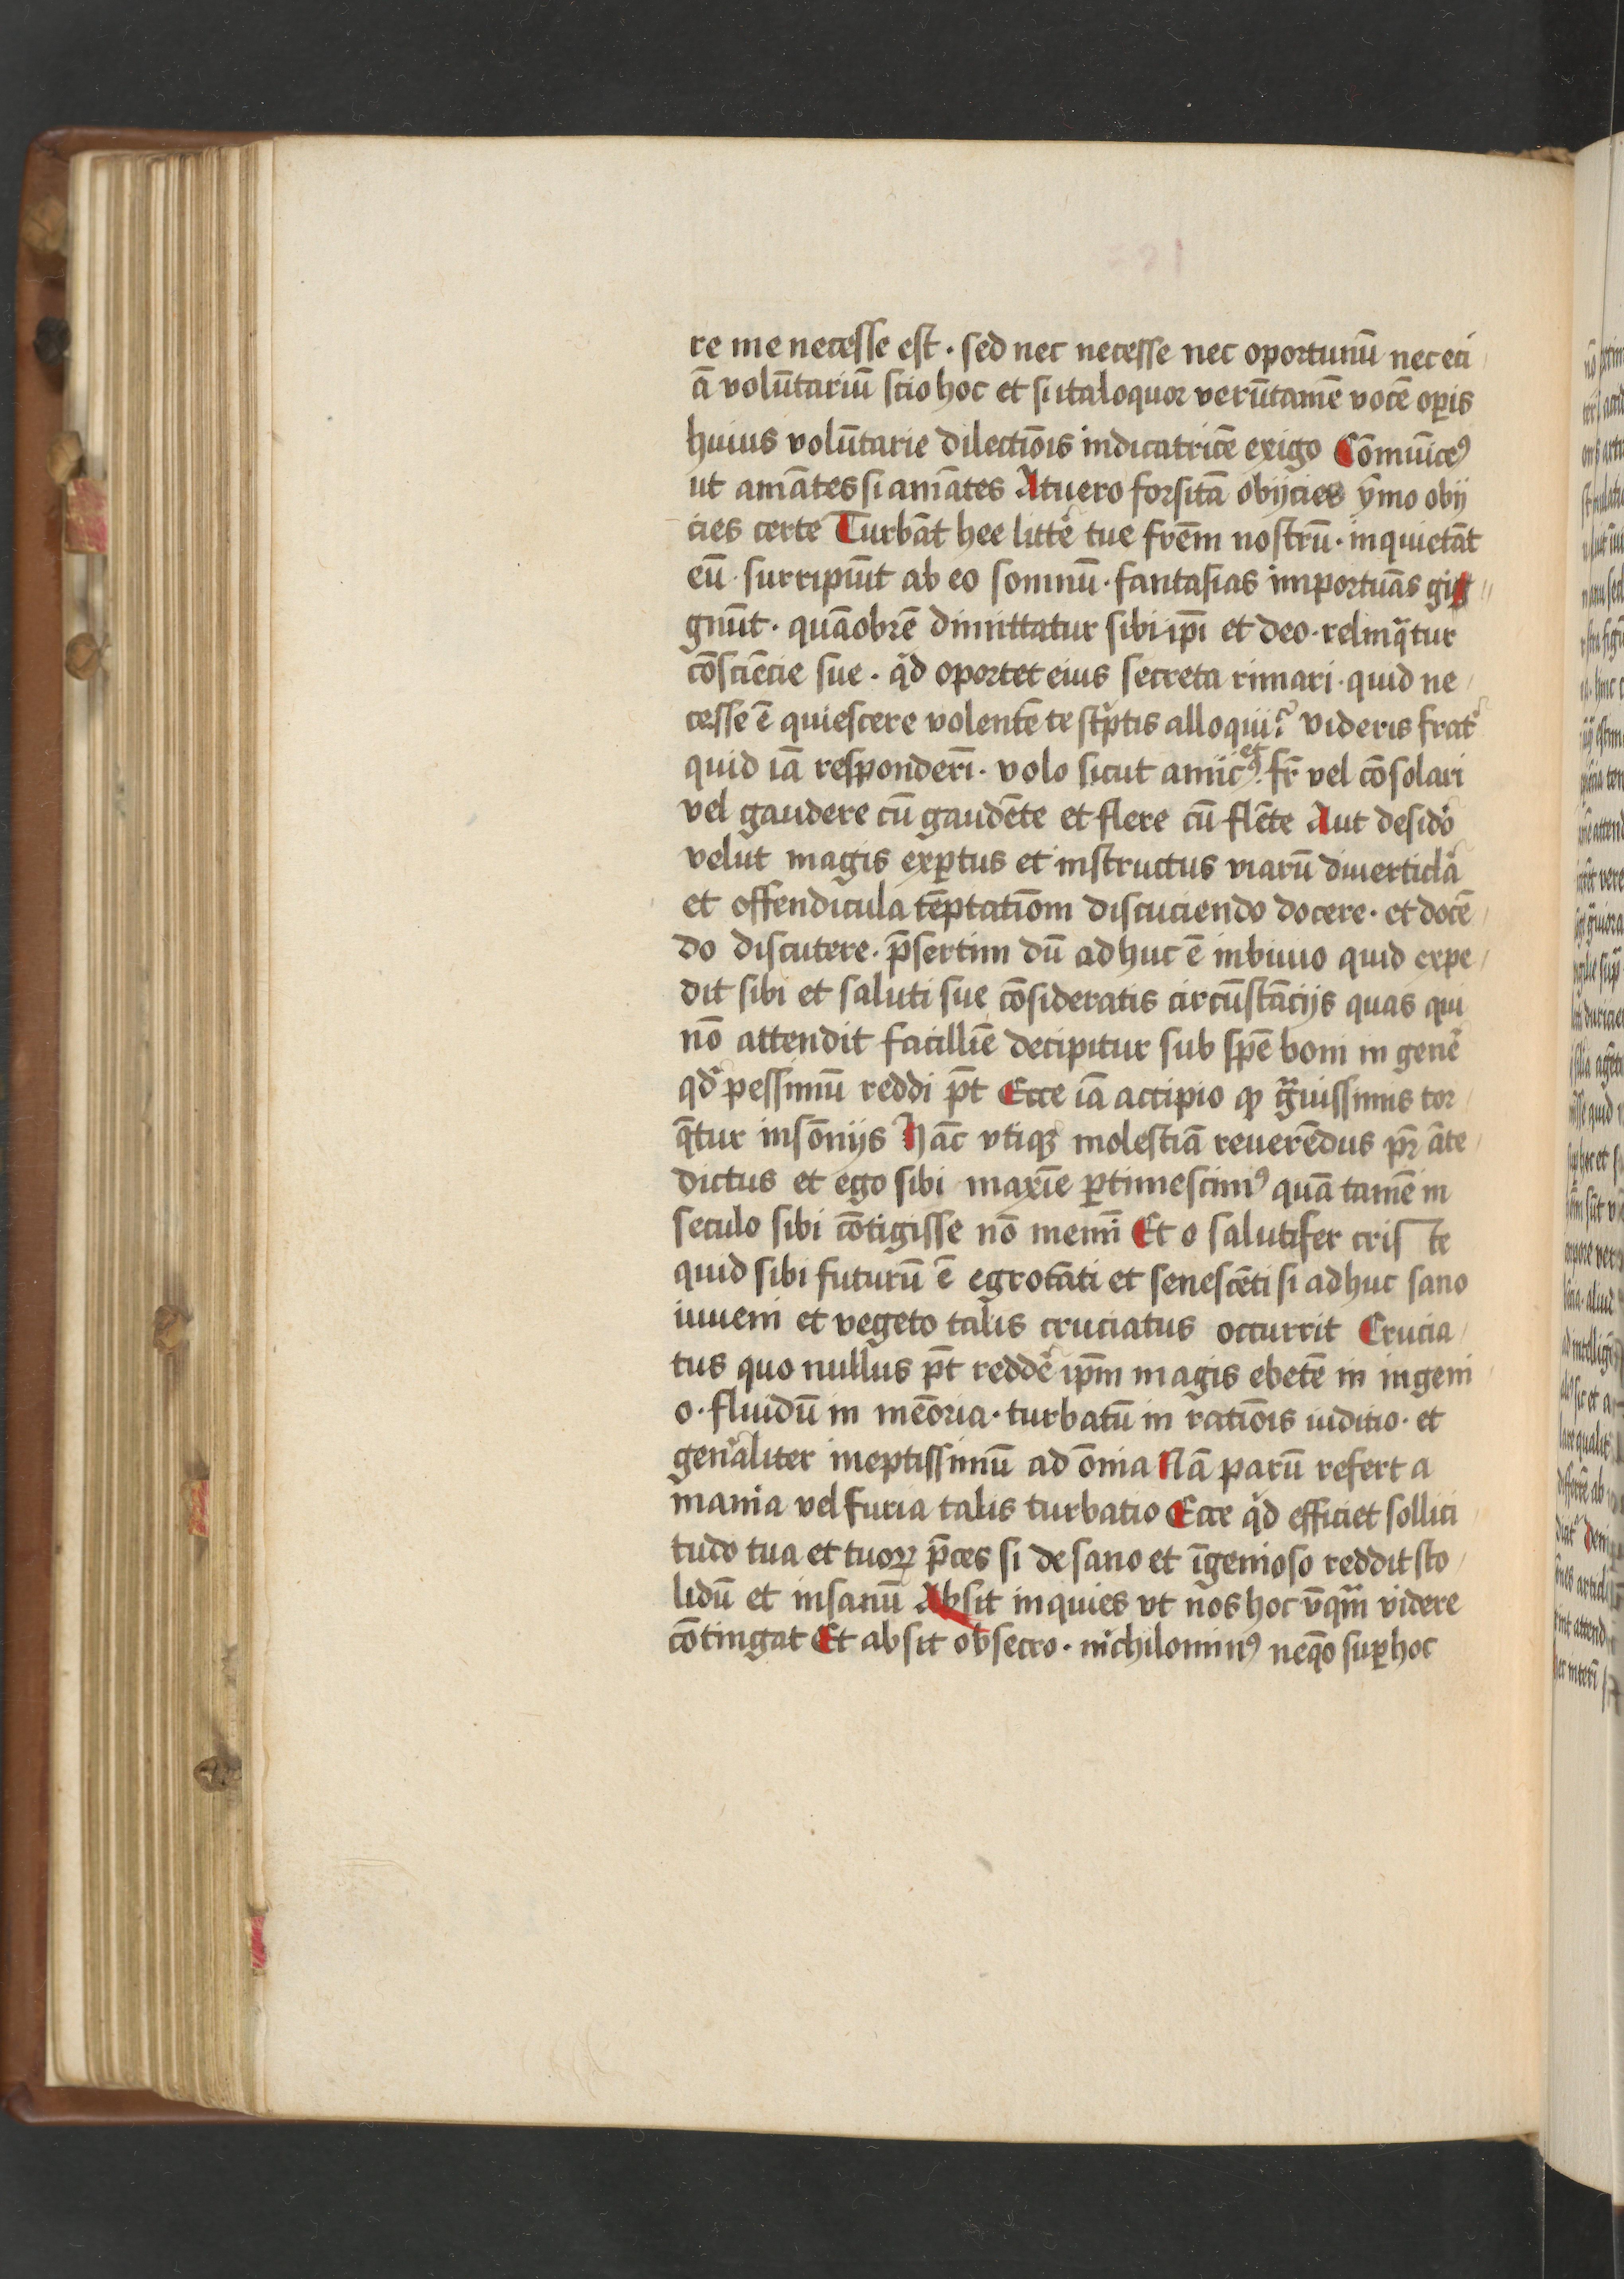 re me necesse est · sed nec necesse nec oportunū nec eci
ā volūtariū scio hoc et si ita loquor verūtamē vocē oꝑis
huius volūtarie dilectiōis indicatricē exigo Cōmūicēꝰ
ut amātes si amātes At uero forsitā obijcies ȳmo obij
cies certe Turbāt hee litte͛ tue frēm nostrū · inquietāt
eū · surripiūt ab eo somnū · fantasias importūas gi
gnūt · quāobrē dimittatur sibi ipī et deo · relinqͣtur
cōsciēcie sue · qͥd oportet eius secreta rimari · quid ne
cesse ē quiescere volentē te scͥptis alloqui? videris frat͛
quid iā responderī · volo sicut amicꝰ et fr̄ vel cōsolari
vel gaudere cū gaudēte et flere cū flēte Aut desido͛
velut magis exꝑtus et instructus viarū diuerticl̄a
et offendicula tēptatiōm discuciendo docere · et docē
do discutere · p̄sertim dū adhuc ē in biuio quid expe
dit sibi et saluti sue cōsideratis circūstācijs quas qui
nō attendit facilliē decipitur sub spē boni in gene͛
qd̓ pessimū reddi pt̄ Ecce iā accipio ꝙ gͣuissimis tor
q̄tur insōnijs Hāc vtiqꝫ molestiā reuerēdus pr̄ āte
dictus et ego sibi maxīe ꝑtimescimꝰ quā tamē in
seculo sibi cōtigisse nō memī Et o salutifer cris te
quid sibi futurū ē egrotāti et senescēti si adhuc sano
iuueni et vegeto talis cruciatus occurrit Crucia
tus quo nullus pt̄ redde͛ ipm̄ magis ebetē in ingeni
o · fluidū in mēoria · turbatū in ratiōis iuditio · et
gen͛aliter ineptissimū ad ōnia Nā parū refert a
mania vel furia talis turbatio Ecce qͥd efficiet sollici
tudo tua et tuoꝝ p̄ces si de sano et īgenioso reddit sto
lidū et insanū Absit inquies vt nos hoc vn̄qͣm videre
cōtingat Et absit obsecro · nichilominꝰ neq̄o suꝑ hoc